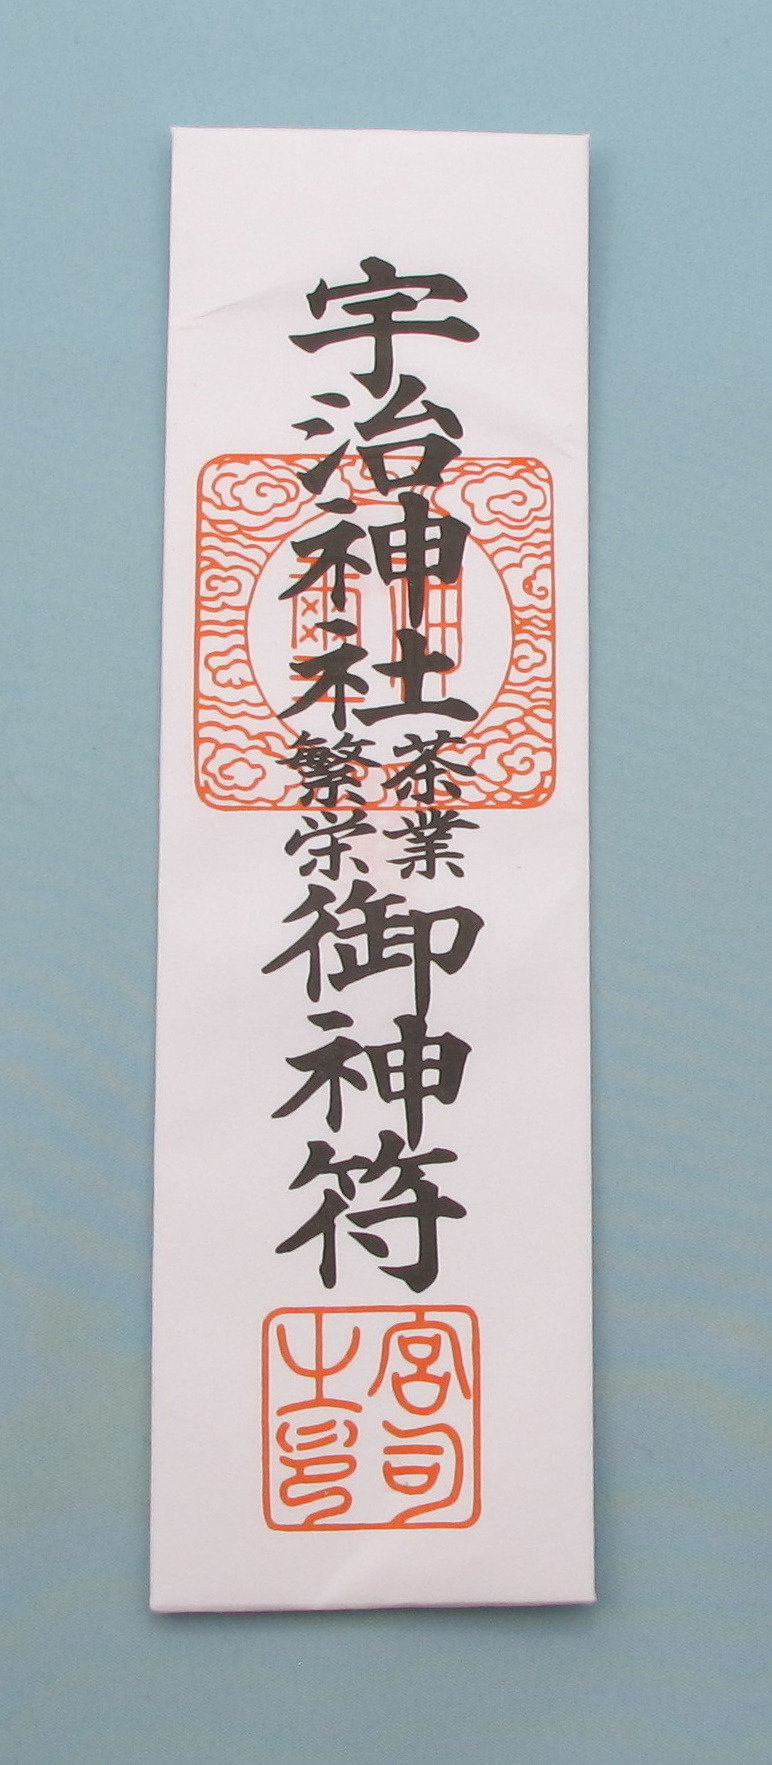 宇治神社
茶業
繁栄
御神符
宮司
之印